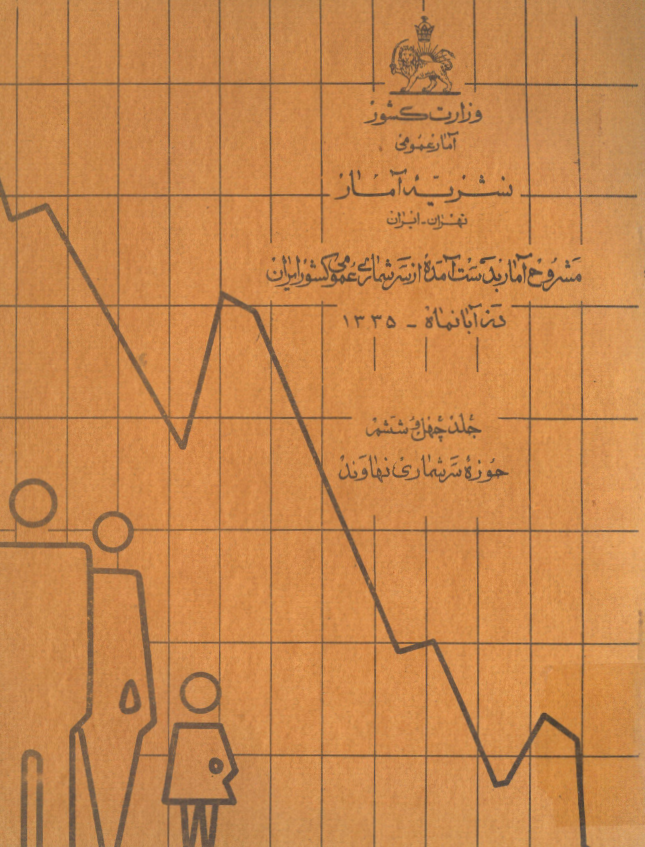 وزارت کشور
آمار عمومی
نشریه آمار
تهران - ایران
مشروح آمار بدست آمده از سرشماری عمومی کشور ایران
در آبانماه - ۱۳۳۵
جلد چهل و ششم
حوزه سرشماری نهاوند